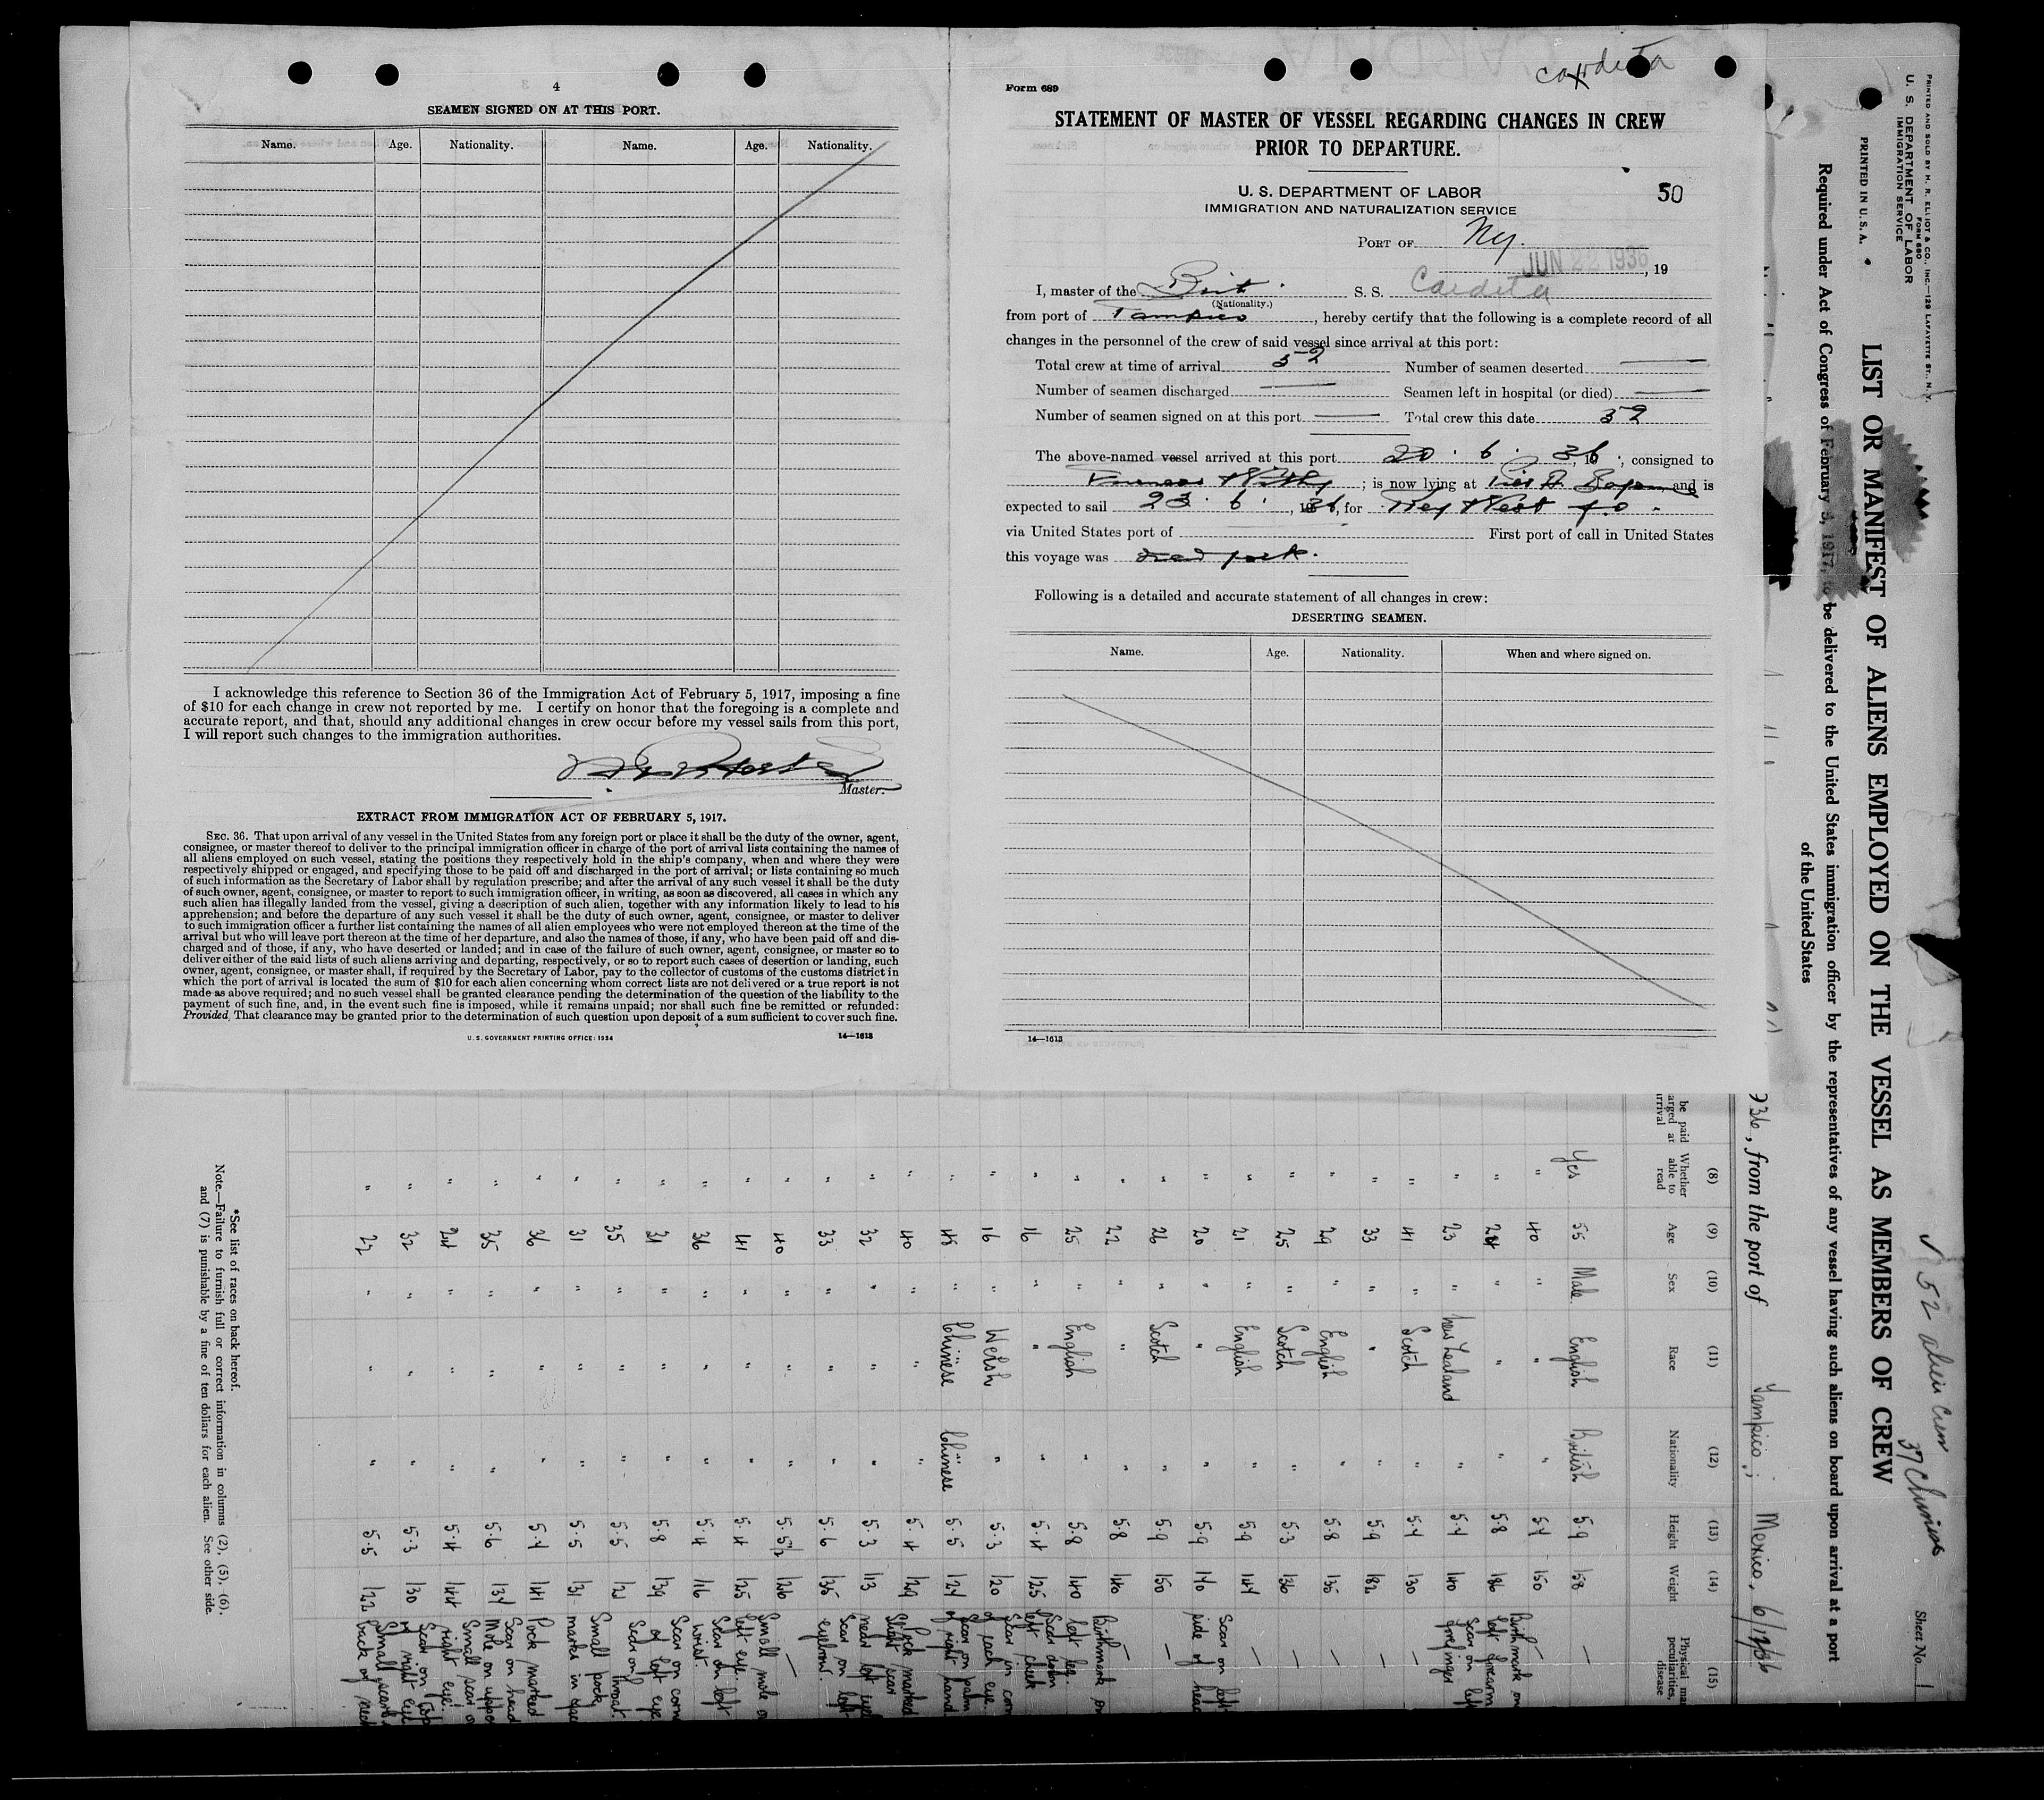 4
SEAMEN SIGNED ON AT THIS PORT.
Name. Age. Nationality. Name. Age. Nationality.
I acknowledge this reference to Section 36 of the Immigration Act of February 5, 1917, imposing a fine
of $10 for each change in crew not reported by me. I certify on honor that the foregoing is a complete and
accurate report, and that, should any additional changes in crew occur before my vessel sails from this port,
I will report such changes to the immigration authorities.
Master.
EXTRACT FROM IMMIGRATION ACT OF FEBRUARY 5, 1917.
SEC. 36. That upon arrival of any vessel in the United States from any foreign port or place it shall be the duty of the owner, agent,
consignee, or master thereof to deliver to the principal immigration officer in charge of the port of arrival lists containing the names of
all aliens employed on such vessel, stating the positions they respectively hold in the ship's company, when and where they were
respectively shipped or engaged, and specifying those to be paid off and discharged in the port of arrival; or lists containing so much
of such information as the Secretary of Labor shall by regulation prescribe; and after the arrival of any such vessel it shall be the duty
of such owner, agent, consignee, or master to report to such immigration officer, in writing, as soon as discovered, all cases in which any
such alien has illegally landed from the vessel, giving a description of such alien, together with any information likely to lead to his
apprehension; and before the departure of any such vessel it shall be the duty of such owner, agent, consignee, or master to deliver
to such immigration officer a further list containing the names of all alien employees who were not employed thereon at the time of the
arrival but who will leave port thereon at the time of her departure, and also the names of those, if any, who have been paid off and dis-
charged and of those, if any, who have deserted or landed; and in case of the failure of such owner, agent, consignee, or master so to
deliver either of the said lists of such aliens arriving and departing, respectively, or so to report such cases of desertion or landing, such
owner, agent, consignee, or master shall, if required by the Secretary of Labor, pay to the collector of customs of the customs district in
which the port of arrival is located the sum of $10 for each alien concerning whom correct lists are not delivered or a true report is not
made as above required; and no such vessel shall be granted clearance pending the determination of the question of the liability to the
payment of such fine, and, in the event such fine is imposed, while it remains unpaid; nor shall such fine be remitted or refunded:
Provided, That clearance may be granted prior to the determination of such question upon deposit of a sum sufficient to cover such fine.
U. S. GOVERNMENT PRINTING OFFICE: 1934 14—1613
Cardita
Form 689
STATEMENT OF MASTER OF VESSEL REGARDING CHANGES IN CREW
PRIOR TO DEPARTURE.
U. S. DEPARTMENT OF LABOR
IMMIGRATION AND NATURALIZATION SERVICE
50
PORT OF Ny.
JUN 22 1936, 19
I, master of the Brit. S. S. Cardita
(Nationality.)
from port of Tampico, hereby certify that the following is a complete record of all
changes in the personnel of the crew of said vessel since arrival at this port:
Total crew at time of arrival 52 Number of seamen deserted —
Number of seamen discharged — Seamen left in hospital (or died) —
Number of seamen signed on at this port — Total crew this date 52
The above-named vessel arrived at this port 20 . 6 . 36, 19 ; consigned to
Furness Withy ; is now lying at Pier Bayonne and is
expected to sail 23 . 6 . , 1936, for Key West
via United States port of First port of call in United States
this voyage was New York.
Following is a detailed and accurate statement of all changes in crew:
DESERTING SEAMEN.
Name. Age. Nationality. When and where signed on.
14—1613
PRINTED AND SOLD BY H. R. ELLIOT & CO., INC.—129 LAFAYETTE ST., N. Y.
FORM 680
U. S. DEPARTMENT OF LABOR
IMMIGRATION SERVICE
PRINTED IN U. S. A.
✓ 52 alien crew
37 Chinese
Sheet No. 1
LIST OR MANIFEST OF ALIENS EMPLOYED ON THE VESSEL AS MEMBERS OF CREW
Required under Act of Congress of February 5, 1917, to be delivered to the United States immigration officer by the representatives of any vessel having such aliens on board upon arrival at a port
of the United States
936, from the port of Tampico, Mexico, 6/13/36
be paid
arged at
arrival
(8) (9) (10) (11) (12) (13) (14) (15)
Whether able to read Age Sex Race Nationality Height Weight Physical peculiarities, disease
Yes 55 Male English British 5.9 158 —
" 40 " " " 5.7 150 —
" 24 " " " 5.8 186 Birthmark on left forearm
" 23 " New Zealand " 5.7 140 Scar on left forefinger
" 41 " Scotch " 5.7 130 —
" 33 " " " 5.9 182 —
" 29 " English " 5.8 135 —
" 25 " Scotch " 5.3 136 —
" 21 " English " 5.9 147 —
" 20 " " " 5.9 170 Scar on left side of head
" 26 " Scotch " 5.9 150 —
" 22 " " " 5.8 140 —
" 25 " English " 5.8 140 Birthmark on left leg.
" 16 " " " 5.4 125 Scar down left cheek
" 16 " Welsh " 5.3 120 Scar in corn of each eye.
" 48 " Chinese Chinese 5.5 127 Scar on palm of right hand
" 40 " " " 5.4 129 Pock marked Slight scar
" 32 " " " 5.3 113 near left eye
" 33 " " " 5.6 135 Scar on left eyebrow.
" 40 " " " 5.5½ 126 —
" 41 " " " 5.4 125 Small mole o left eye.
" 36 " " " 5.4 116 Scar on left wrist.
" 31 " " " 5.8 139 Scar on corn of left eye
" 35 " " " 5.5 121 Scar on throat.
" 31 " " " 5.5 131 Small pock marks in
" 36 " " " 5.7 141 Pock marked
" 35 " " " 5.6 137 Scar on head Mole on uppe
" 24 " " " 5.4 144 Small scar o right eye.
" 32 " " " 5.3 130 Scar on top of right eye
" 22 " " " 5.5 122 Small scar back of neck
*See list of races on back hereof.
Note.—Failure to furnish full or correct information in columns (2), (5), (6),
and (7) is punishable by a fine of ten dollars for each alien. See other side.